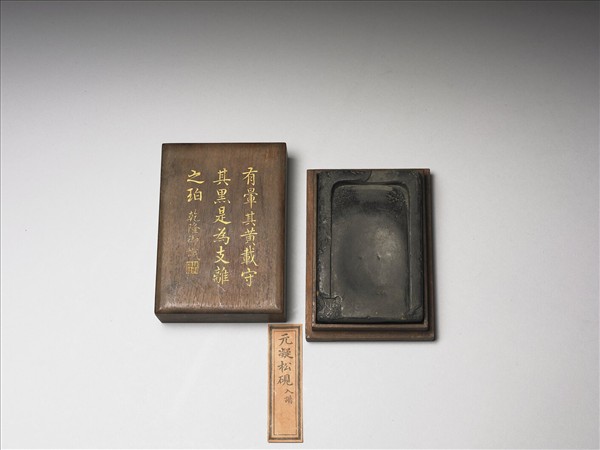 有暈其黃載守
其黑是為支離
之珀 乾隆御
元凝松硯 入譜